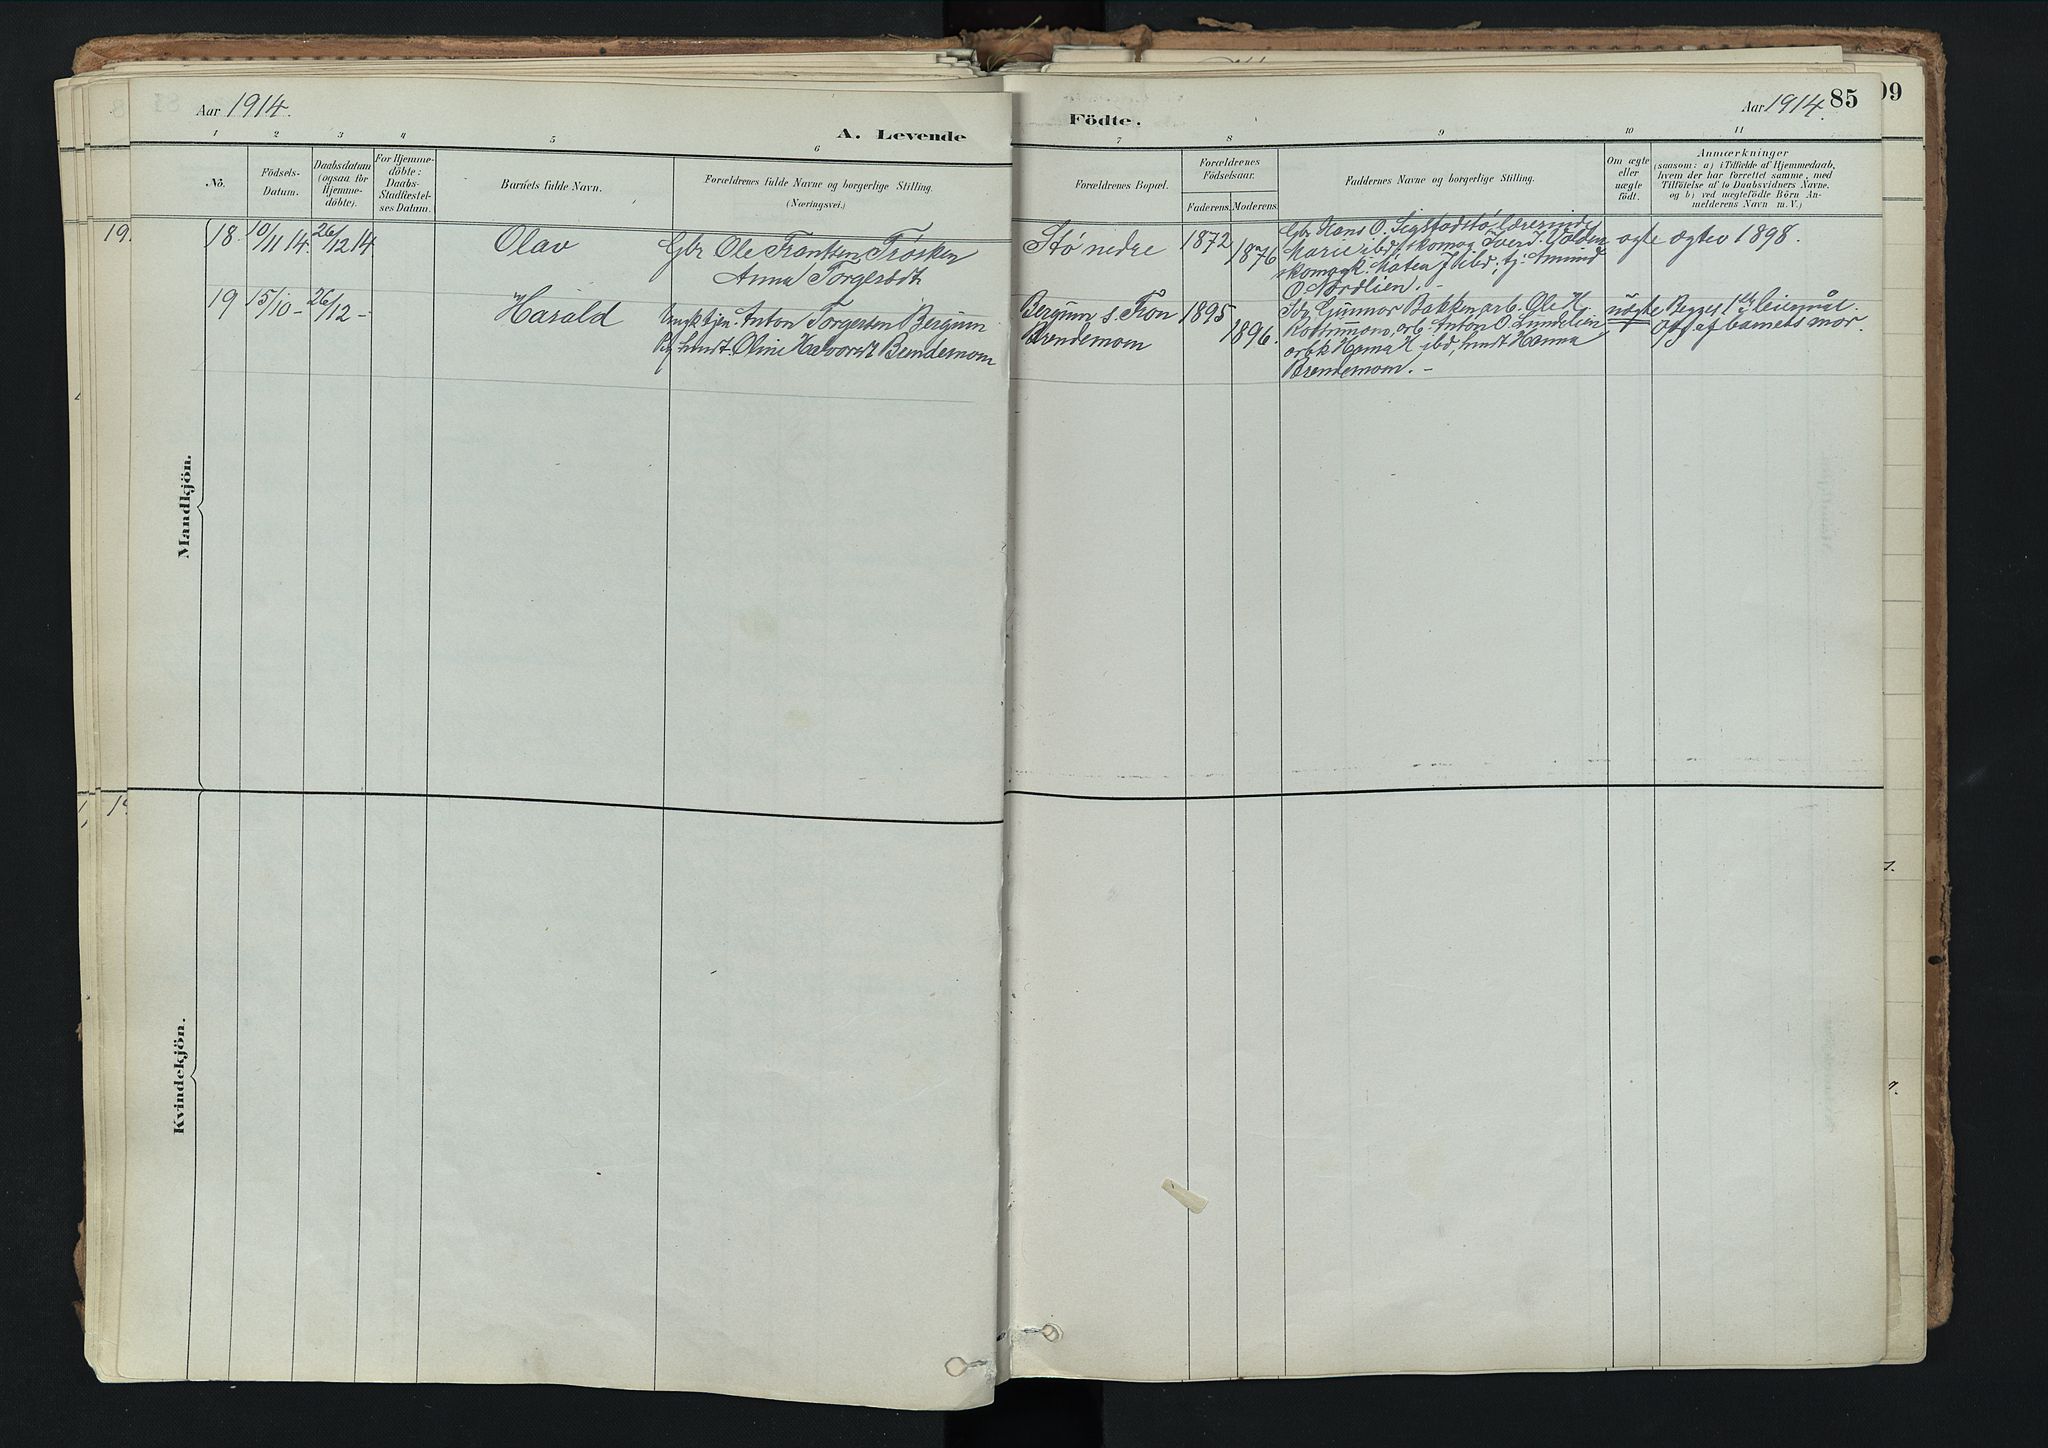 Aar 1914.
A. Levende
Födte.
Aar 1914. 85
09
1 2 3 4 5 6 7 8 9 10 11
No.
Födsels-
Datum.
Daabsdatum
(ogsaa for
Hjemme-
döbte).
For Hjemme-
döbte:
Daabs-
Stadfæstel-
ses Datum.
Barnets fulde Navn.
Forældrenes fulde Navne og borgerlige Stilling.
(Næringsvei.)
Forældrenes Bopæl.
Forældrenes
Födselsaar.
Faderens. Moderens.
Faddernes Navne og borgerlige Stilling.
Om ægte
eller
uægte
födt.
Anmærkninger
(saasom: a) i Tilfælde af Hjemmedaab,
hvem der har forrettet samme, med
Tilföielse af to Daabsvidners Navne,
og b) ved uegtefödte Börn An-
melderens Navn m. V.)
19.
18. 10/11 14. 26/12 14
Olav
Gbr Ole Frantsen Frösken
Anna Torgersdt
Stö nedre
1872
1876
Gbr Hans O. Sigstadstö, lærerinde
Marie ibd, skomag Iver J.
skomagk. Maten J ibd; tj. Amund
O. Nordlien. -
ægte
ægtev 1898.
19 15/10 - 26/12 -
Harald
Anton Torgersen Bergum
Oline Halvorsdt Brendemoen
Bergum s. Fron
Brendemoen
1895
1896.
Gunnar Bakken, arb. Ole H.
arb. Anton O. Lundelien
arbk Hanna K ibd, Hanna
Brendemoen. -
uægte
Begges 1ste leiermål.
Opg af barnets mor.
Mandkjön.
Kvindekjön.